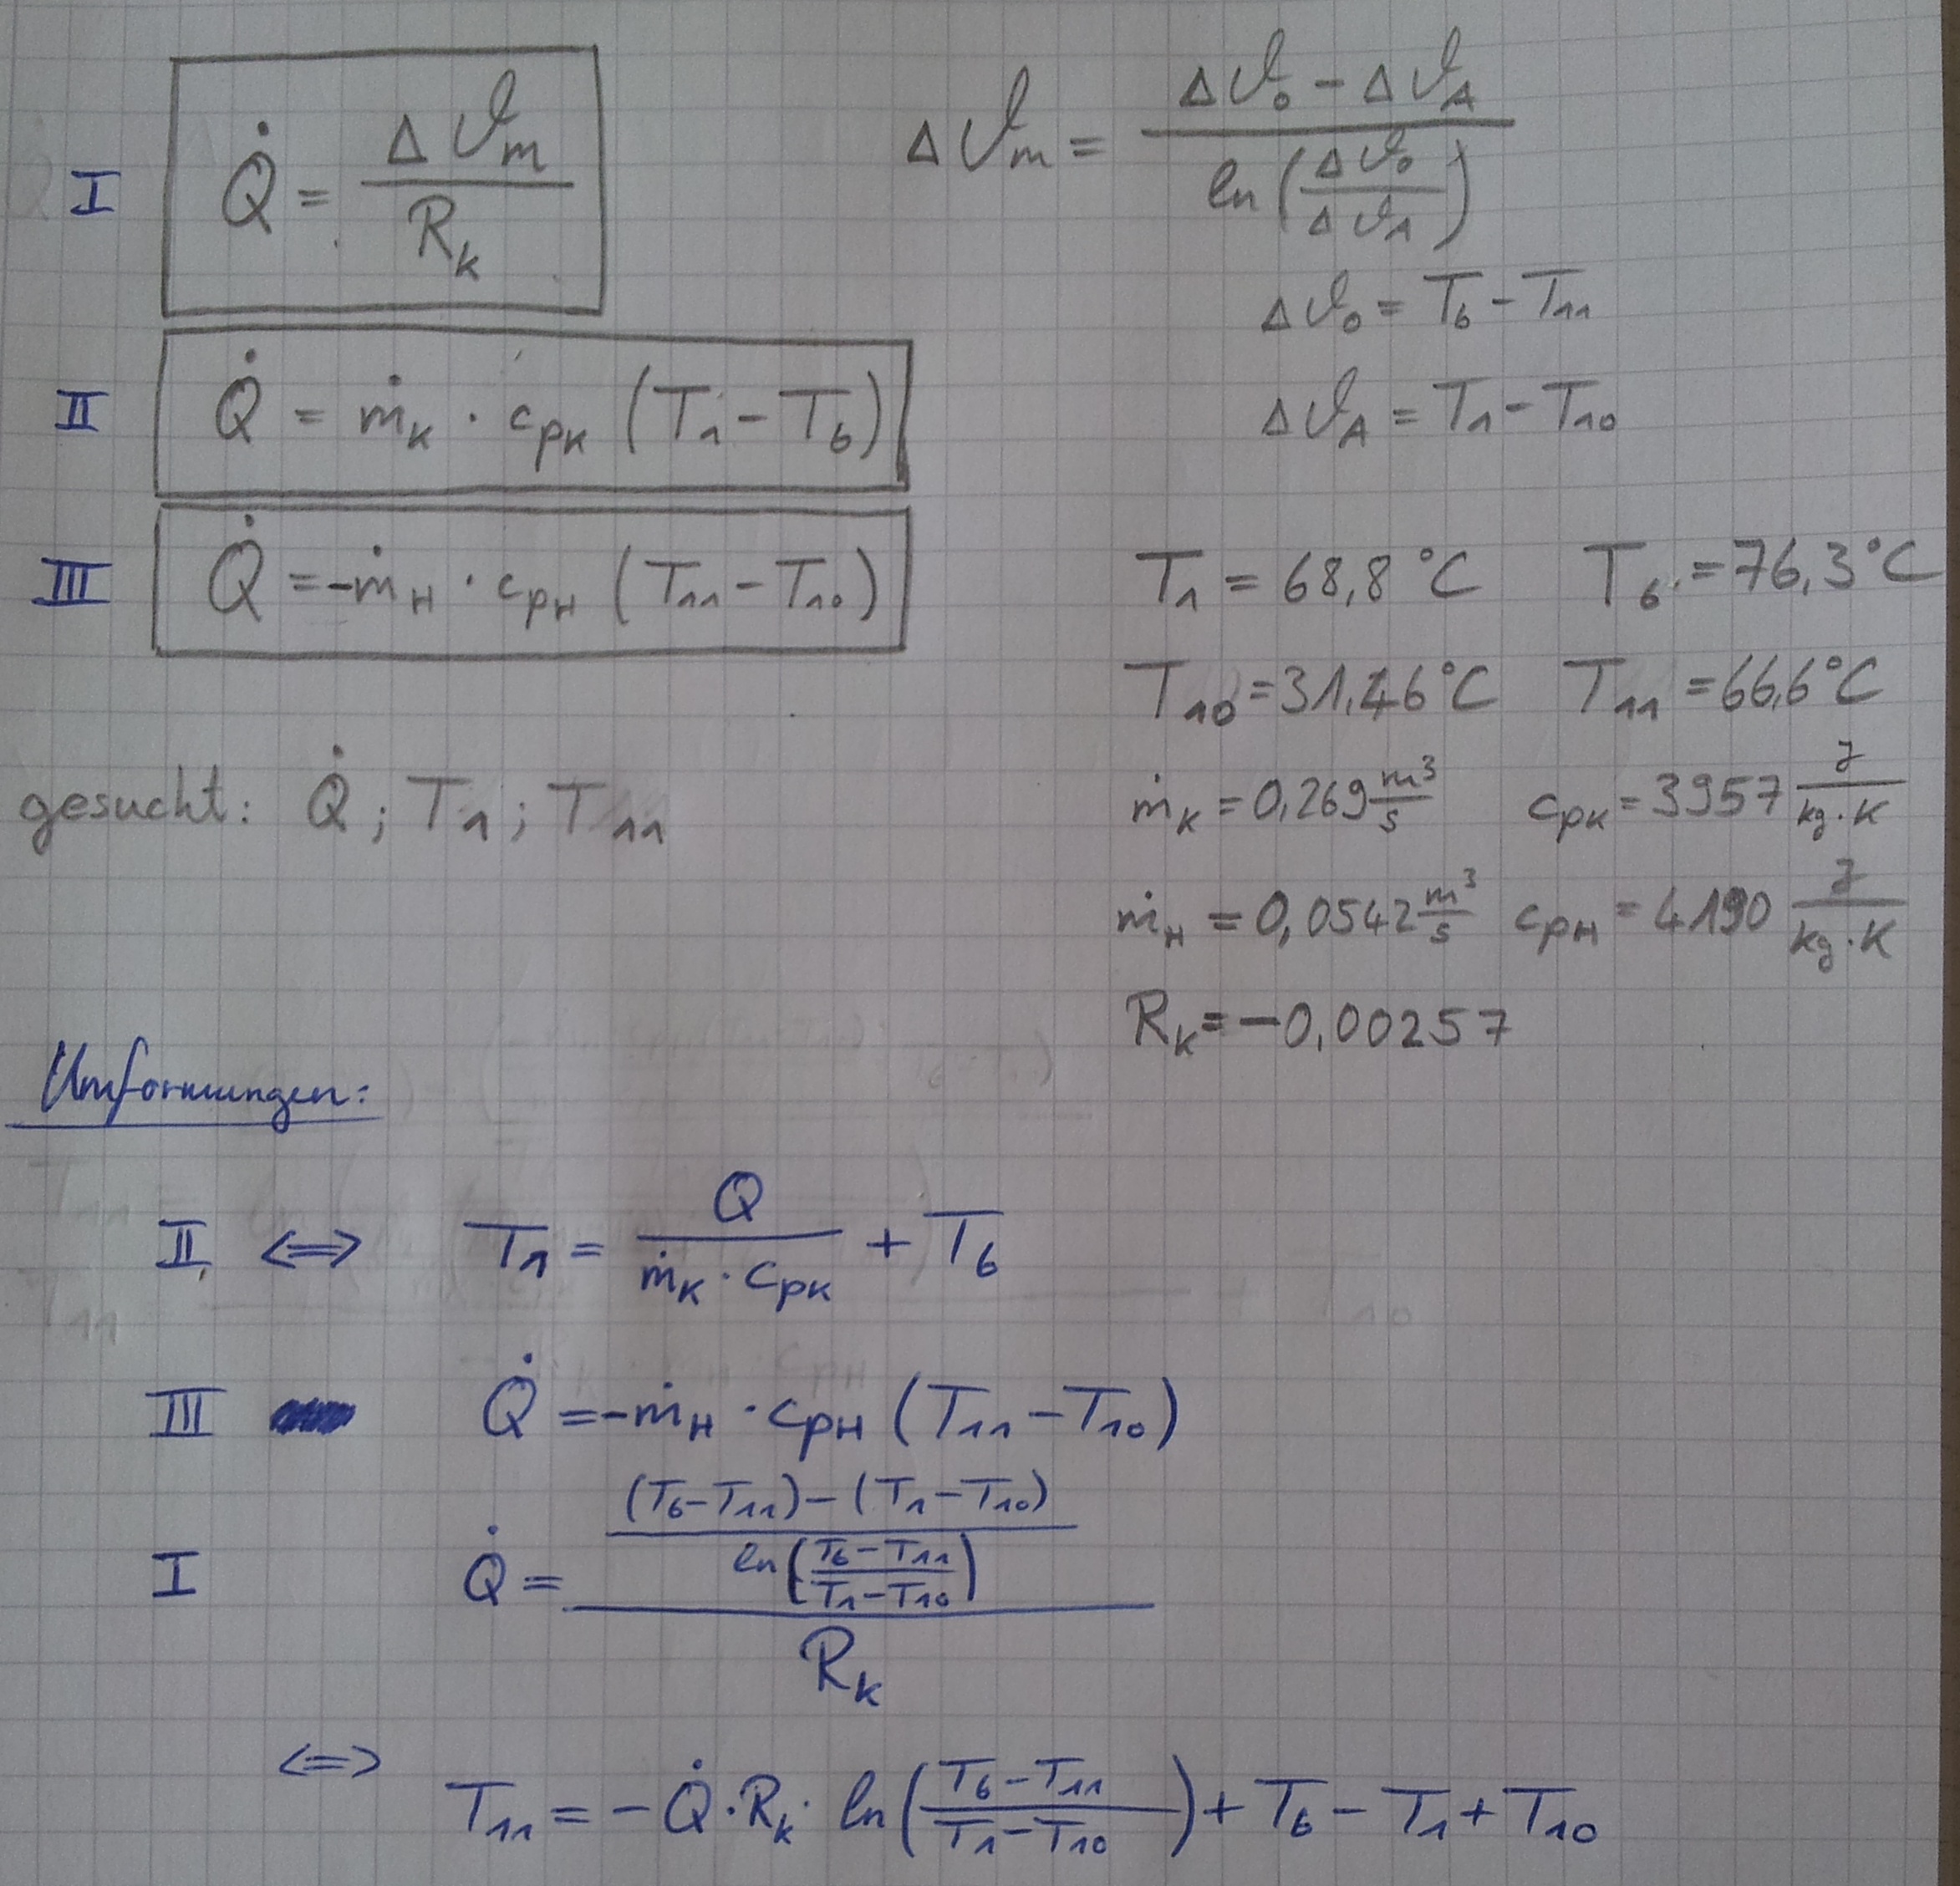 I Q̇ = Δϑm / Rk
Δϑm = (Δϑ₀ − ΔϑA) / ln(Δϑ₀ / ΔϑA)
Δϑ₀ = T₆ − T₁₁
II Q̇ = ṁK · cpK (T₁ − T₆)
ΔϑA = T₁ − T₁₀
III Q̇ = −ṁH · cpH (T₁₁ − T₁₀)
T₁ = 68,8 °C T₆ = 76,3 °C
T₁₀ = 31,46 °C T₁₁ = 66,6 °C
gesucht: Q̇ ; T₁ ; T₁₁
ṁK = 0,269 m³/s cpK = 3957 J/(kg·K)
ṁH = 0,0542 m³/s cpH = 4190 J/(kg·K)
Rk = −0,00257
Umformungen:
II ⇔ T₁ = Q / (ṁK · cpK) + T₆
III Q̇ = −ṁH · cpH (T₁₁ − T₁₀)
I Q̇ = (((T₆ − T₁₁) − (T₁ − T₁₀)) / ln((T₆ − T₁₁) / (T₁ − T₁₀))) / Rk
⇔ T₁₁ = −Q̇ · Rk · ln((T₆ − T₁₁) / (T₁ − T₁₀)) + T₆ − T₁ + T₁₀